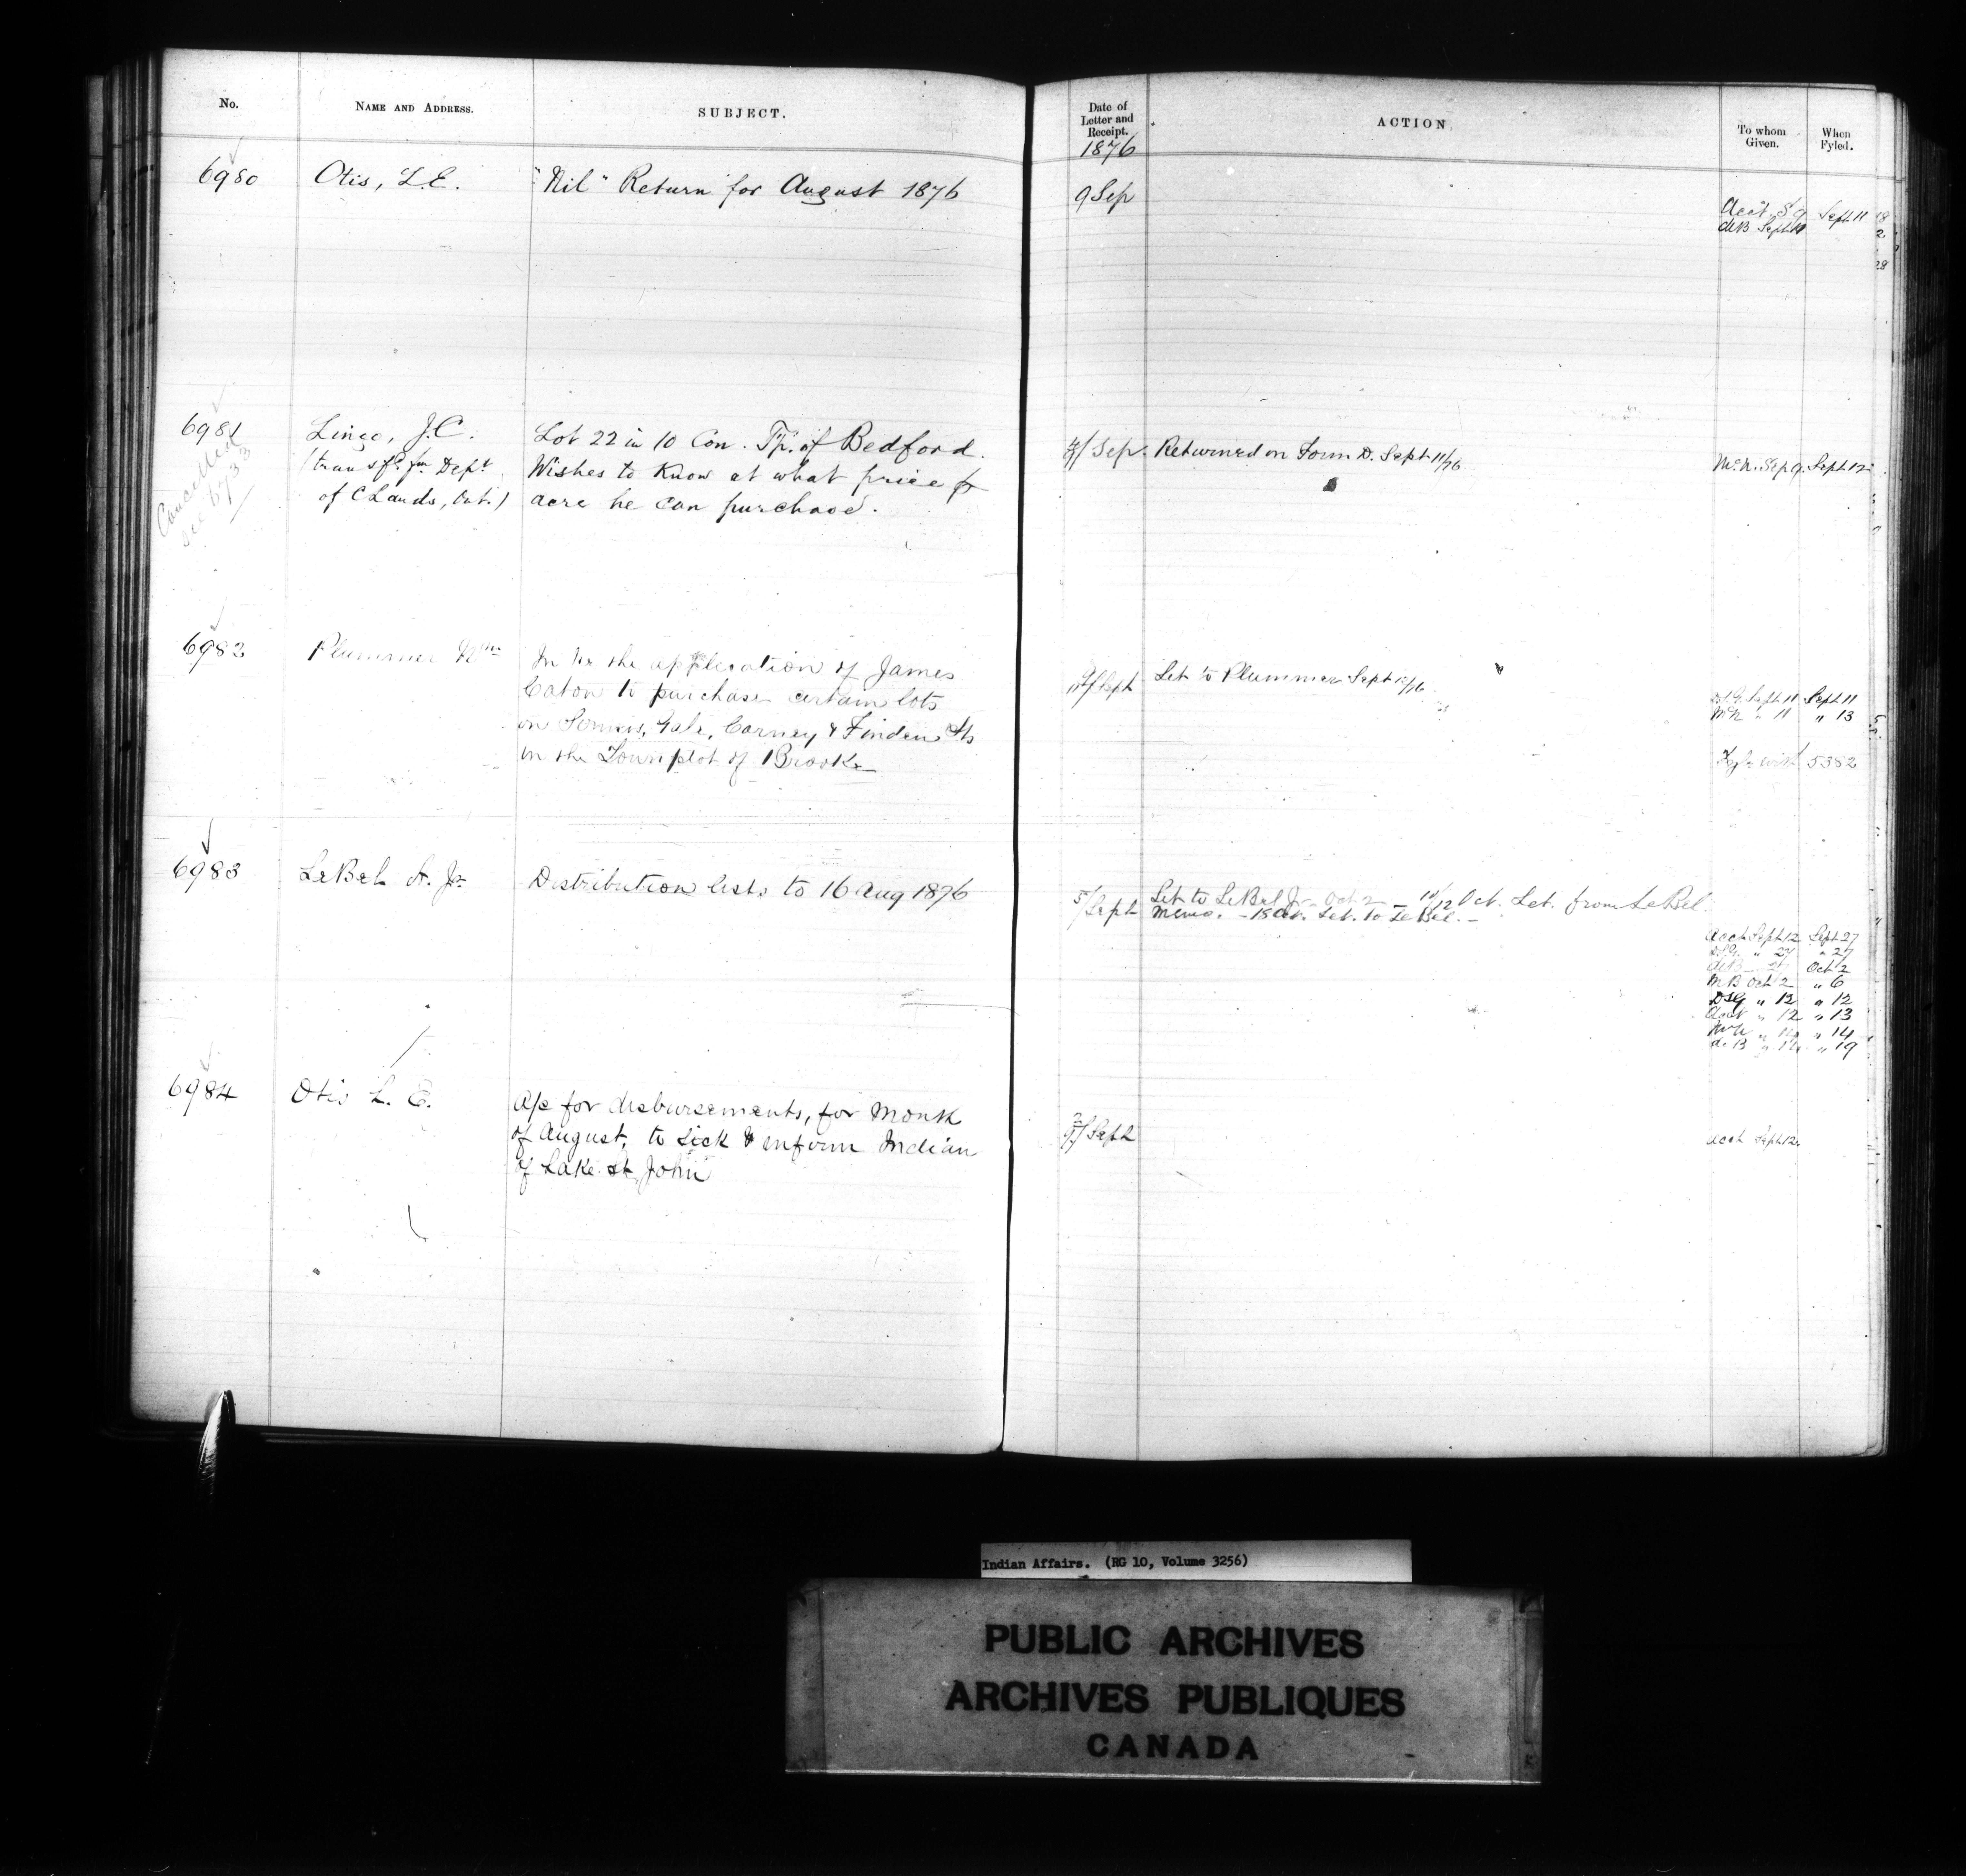 No.
NAME AND ADDRESS.
SUBJECT.
Date of
Letter and
Receipt.
1876
ACTION
To whom
Given.
When
Fyled.
6980
Otis, L.E.
"Nil" Return for August 1876
9 Sep
Acct S 9 Sept 11
deB Sept 11
6981
Cancelled
see 6733
Lingo, J.C.
(transf.d fm Dept
of C Lands, Ont.)
Lot 22 in 10 Con. Tp. of Bedford.
Wishes to know at what price pr
acre he can purchase.
4/ Sep.
Returned on Form D. Sept 11/76
McN. Sep 9. Sept 12
6982
Plummer Wm
In re the application of James
Eaton to purchase certain lots
on Gale, Carney & Finden Sts
in the Townplot of Brooke
9/ Sept
Let to Plummer Sept 12/76
D.S.G. Sept 11 Sept 11
McN " 11 " 13
Fyle with 5382
6983
LeBel A. Jr
Distribution lists to 16 Aug 1876
5/ Sept
Let to LeBel Jr - Oct 2 - 10/12 Oct. Let. from LeBel.
Memo. - 18 Oct. Let. to LeBel. -
Acct Sept 12 Sept 27
D.S.G. " 27 " 27
deB " 27 Oct 2
MB Oct 2 " 6
DSG " 12 " 12
Acct " 12 " 13
McN " 14 " 14
deB " 14 " 19
6984
Otis L. E.
A/c for disbursements, for Month
of August, to Sick & infirm Indian
of Lake St. John
2/9/ Sept
Acct Sept 12.
Indian Affairs. (RG 10, Volume 3256)
PUBLIC ARCHIVES
ARCHIVES PUBLIQUES
CANADA